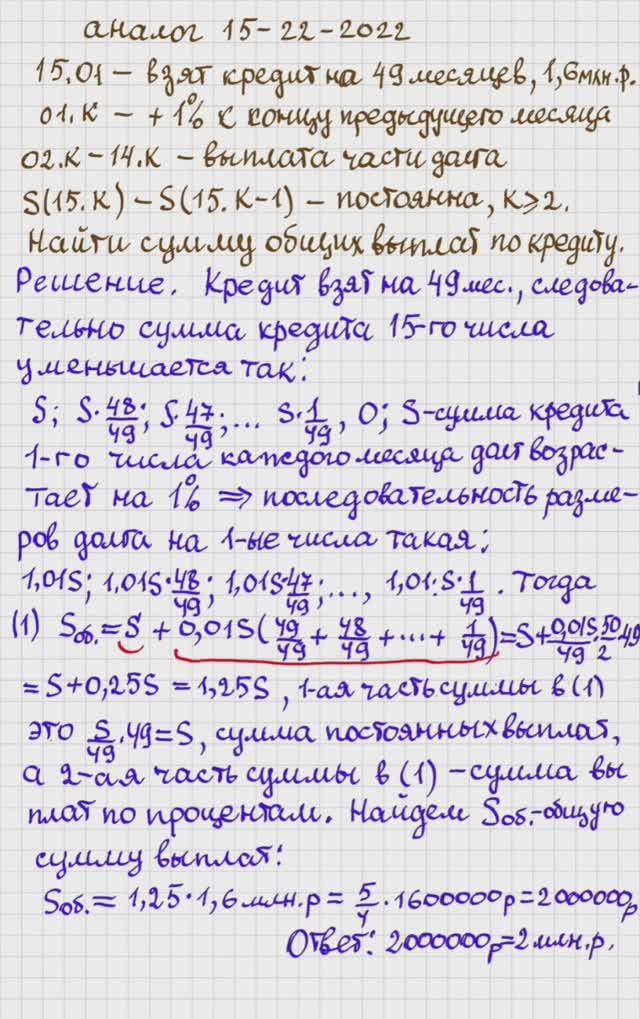 аналог 15-22-2022
15.01 - взят кредит на 49 месяцев, 1,6 млн.р.
01.К - +1% к концу предыдущего месяца
02.К-14.К - выплата части долга
S(15.К) - S(15.К-1) - постоянна, К⩾2.
Найти сумму общих выплат по кредиту.
Решение. Кредит взят на 49 мес., следова-
тельно сумма кредита 15-го числа
уменьшается так:
S; S·48/49; S·47/49; ... S·1/49, 0; S-сумма кредита
1-го числа каждого месяца долг возрас-
тает на 1% ⇒ последовательность разме-
ров долга на 1-ые числа такая:
1,01S; 1,01S·48/49; 1,01S·47/49; ..., 1,01·S·1/49. Тогда
(1) Sоб.= S + 0,01S(49/49 + 48/49 + ... + 1/49) = S + 0,01S/49·50/2·49
= S + 0,25S = 1,25S, 1-ая часть суммы в (1)
это S/49·49 = S, сумма постоянных выплат,
а 2-ая часть суммы в (1) - сумма вы
плат по процентам. Найдем Sоб.-общую
сумму выплат:
Sоб.= 1,25·1,6 млн.р = 5/4·1600000р = 2000000р
Ответ: 2000000р = 2 млн.р.